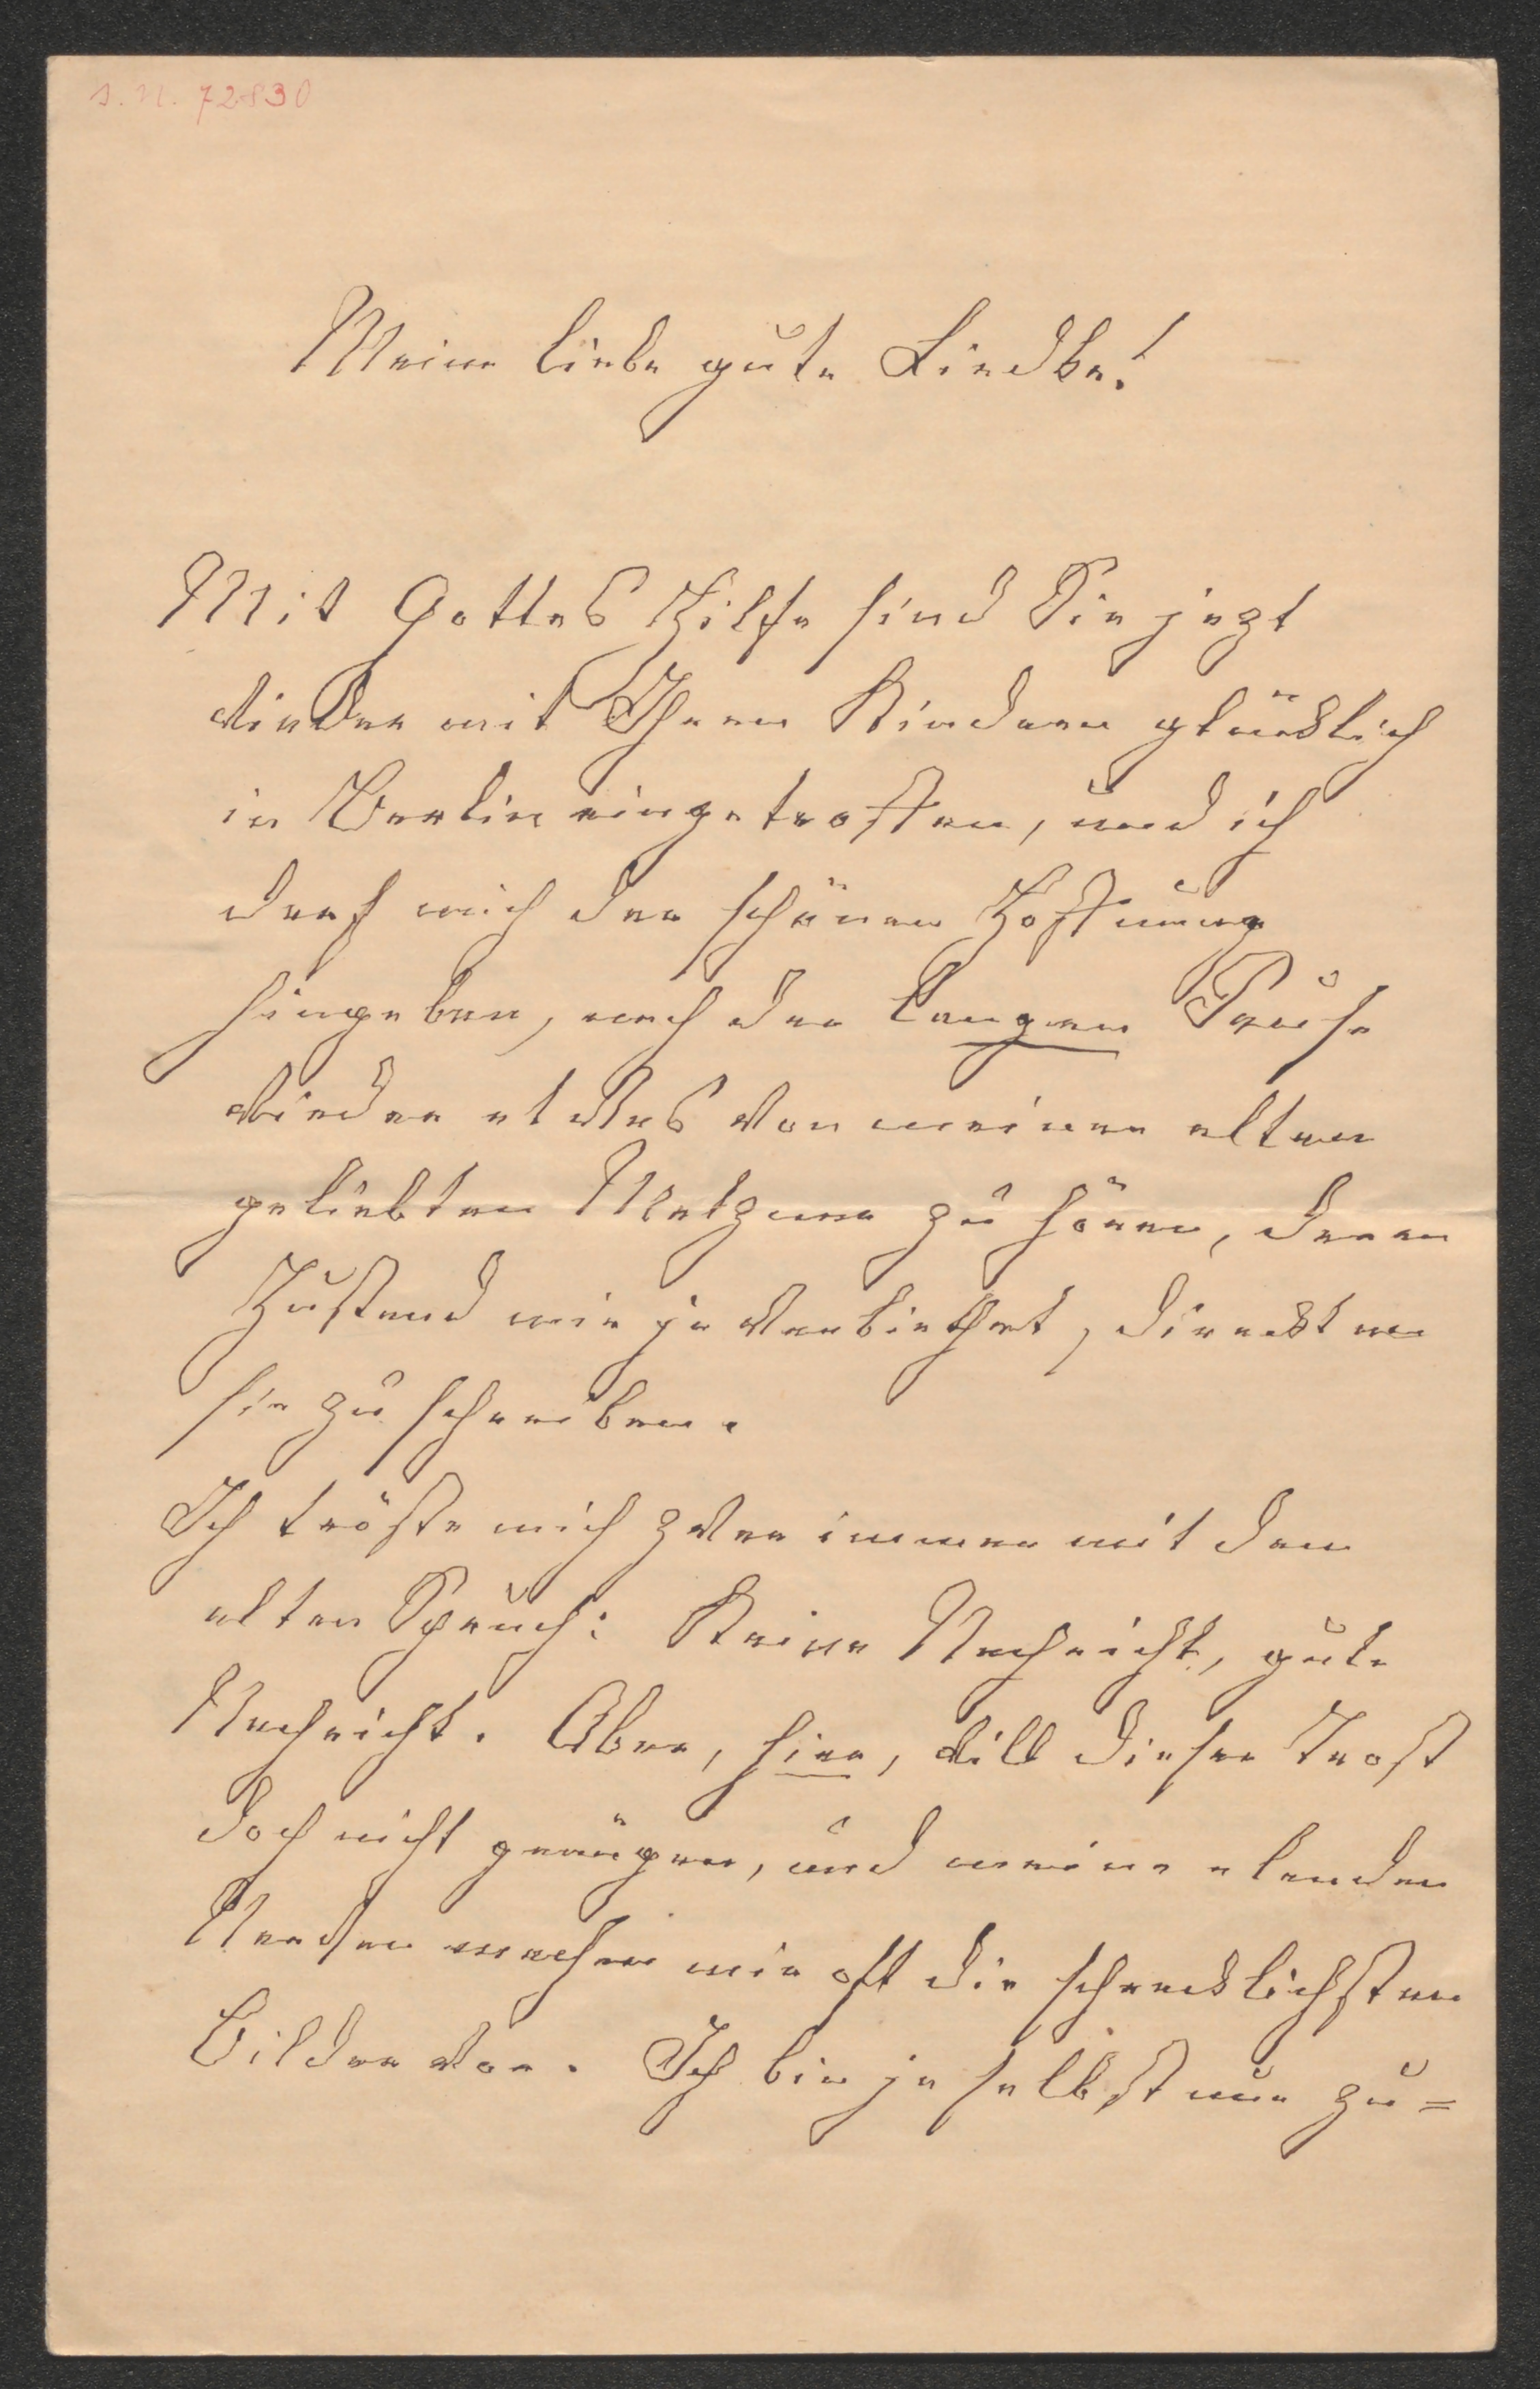 s. n. 72830
Meine liebe gute Liedke!
Mit Gottes Hilfe sind Sie jezt
wieder mit Ihren Kindern glücklich
in Berlin eingetroffen, und ich
darf mich der schönen Hoffnung
hingeben, nach der langen Pause
wieder etwas von meiner alten
geliebten zu hören, deren
Zustand mir ja verbiethet, direckt an
sie zu schreiben.
Ich tröste mich zwar immer mit dem
alten Spruch: Keine Nachricht, gute
Nachricht. Aber, hier, will dieser Trost
doch nicht genügen, und meine elenden
Nerven machen mir oft die schrecklichsten
Bilder vor. Ich bin ja selbst nur zu=